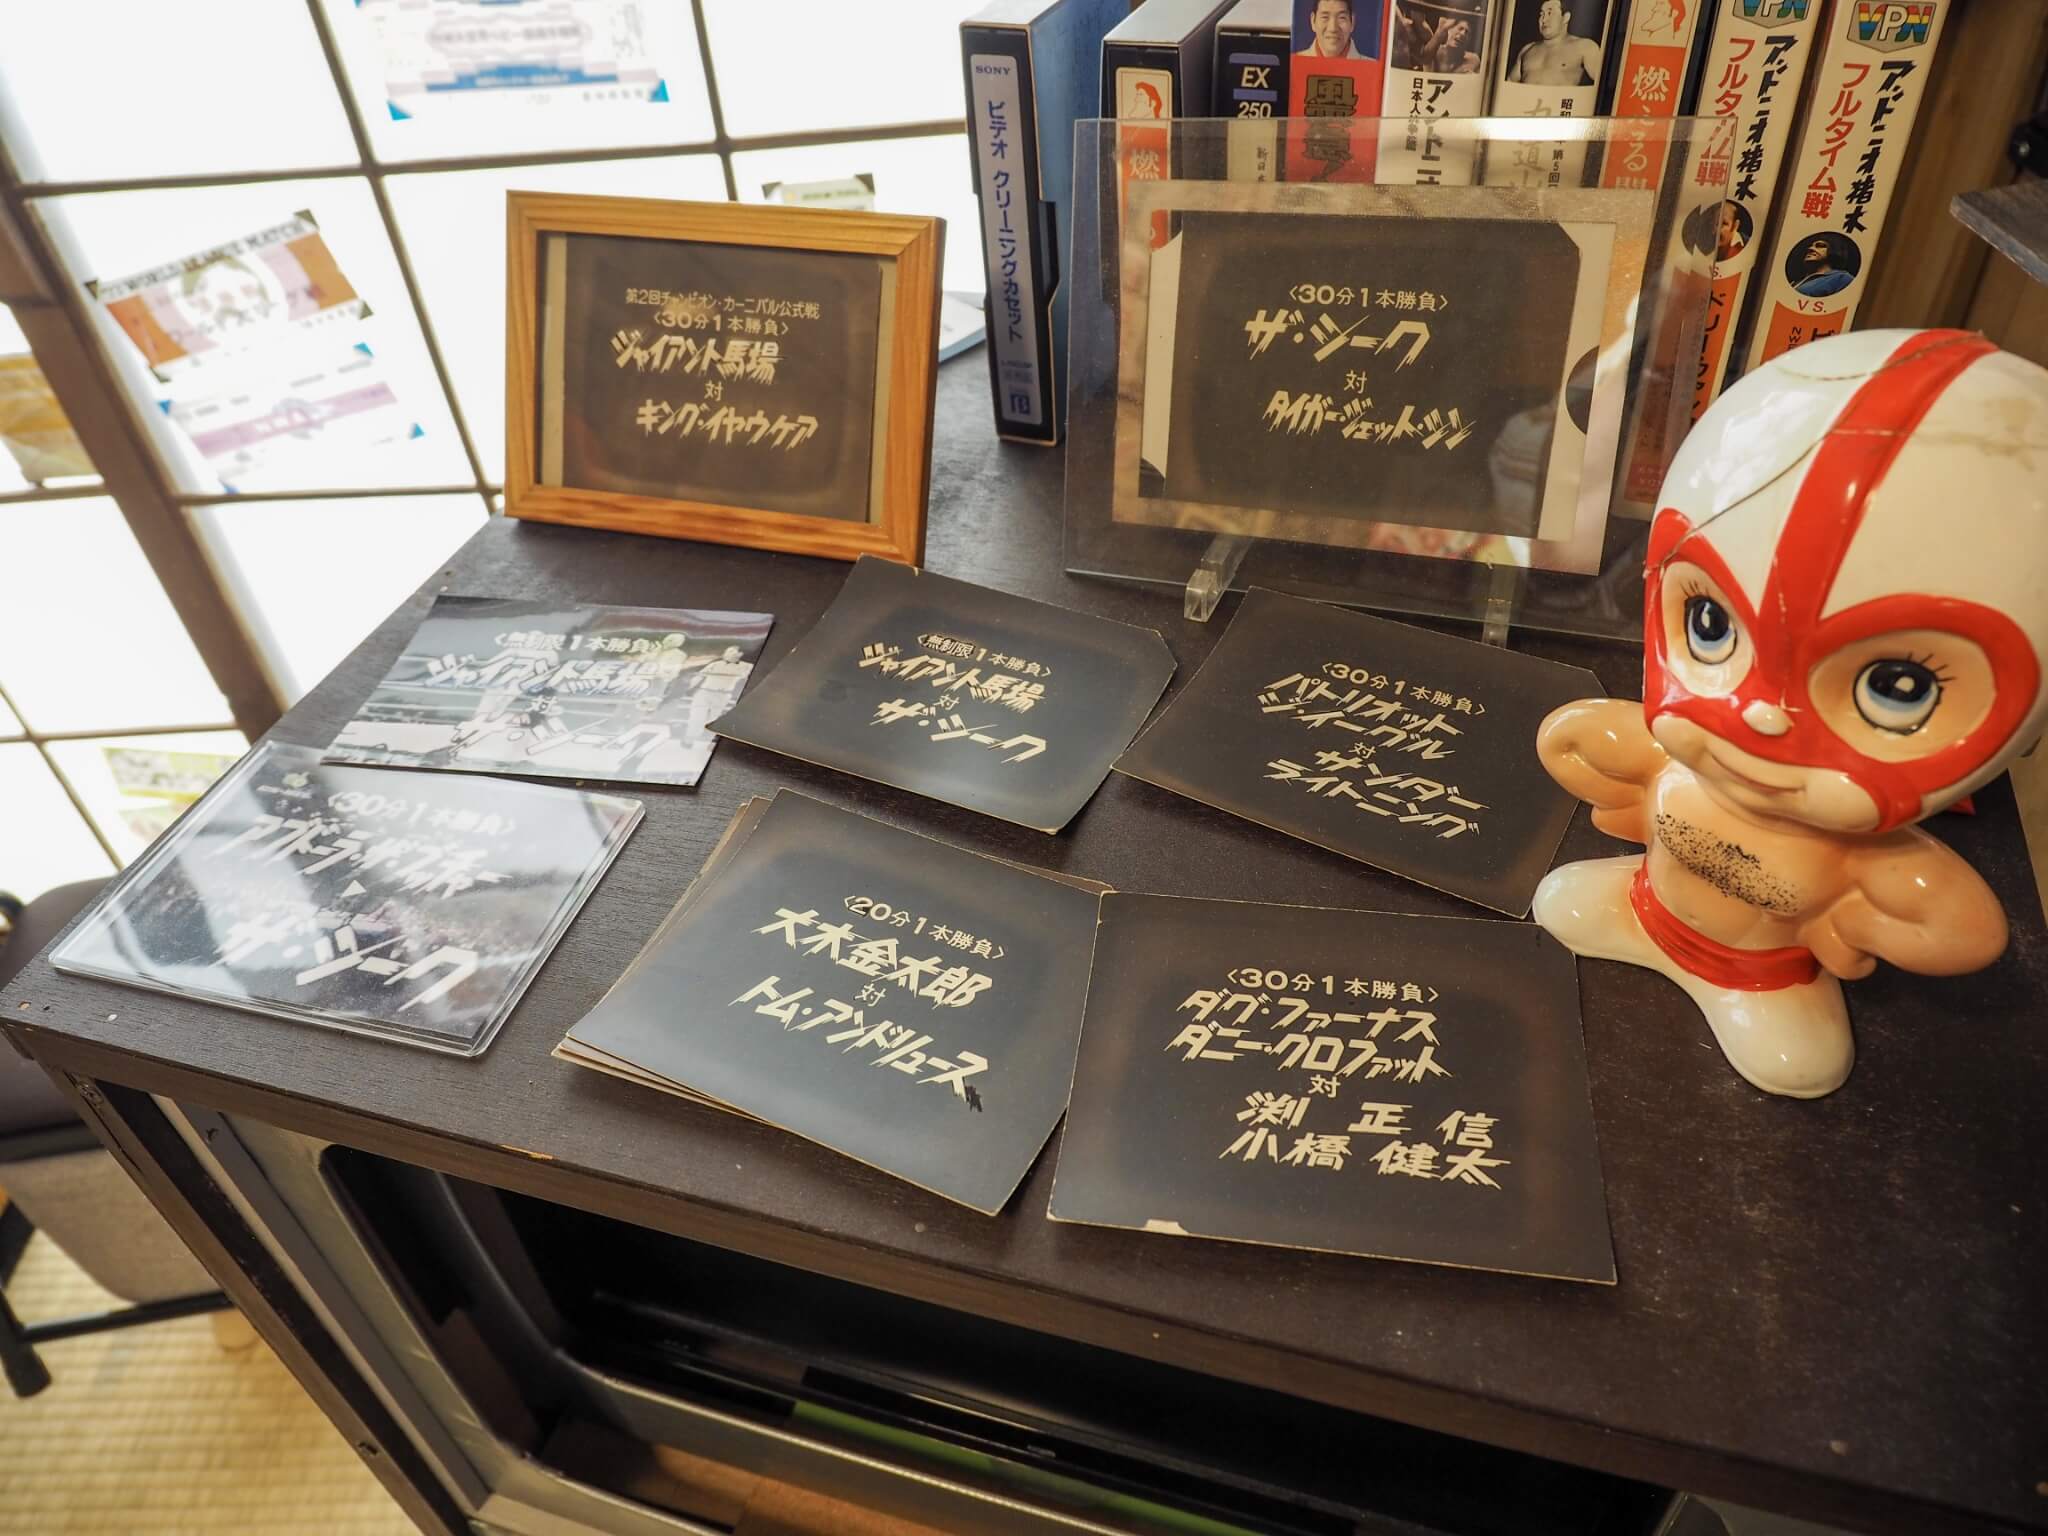 WORLD LEAGUE MATCH
SONY
ビデオ クリーニングカセット
燃
EX
250
新日本
アントニオ
日本人
昭和
第5回
燃える
VPN
アントニオ猪木
フルタイム戦
VS.
VPN
アントニオ猪木
フルタイム戦
VS.
第2回チャンピオン・カーニバル公式戦
〈30分1本勝負〉
ジャイアント馬場
対
キング・イヤウケア
〈30分1本勝負〉
ザ・シーク
対
タイガー・ジェット・シン
〈無制限1本勝負〉
ジャイアント馬場
対
ザ・シーク
〈無制限1本勝負〉
ジャイアント馬場
対
ザ・シーク
〈30分1本勝負〉
パトリオット
ジ・イーグル
対
サンダー
ライトニング
〈30分1本勝負〉
アブドーラ・ザ・ブッチャー
ザ・シーク
〈20分1本勝負〉
大木金太郎
対
トム・アンドリュース
〈30分1本勝負〉
ダグ・ファーナス
ダニー・クロファット
対
渕 正 信
小橋 健太